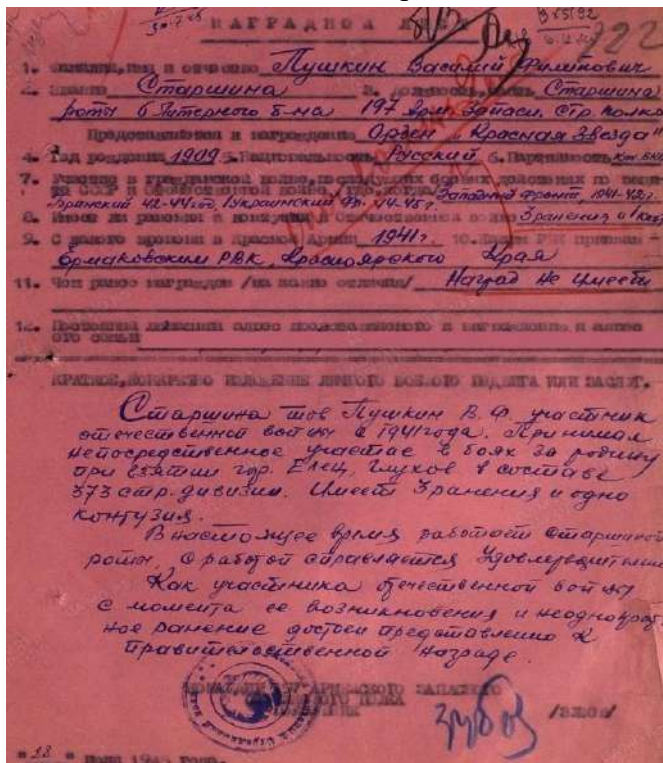 НАГРАДНОЙ ЛИСТ
722
1. Фамилия, имя и отчество Пушкин Василий Филипович
2. Звание Старшина 3. Должность, часть Старшина
роты 6 Литерного б-на 197 Арм. Запасн. Стр. полка
Представляется к награждению Орден "Красная Звезда"
4. Год рождения 1909 5. Национальность Русский 6. Партийность
7. Участие в гражданской войне, последующих боевых действиях по защите
СССР и отечественной войне /где, когда/ Западный фронт, 1941-42г.
Брянский 42-44г., 1 Украинский Фр. 44-45г.
8. Имеет ли ранения и контузии в отечественной войне 3 ранения и 1 конт.
9. С какого времени в Красной Армии 1941г. 10. Каким РВК призван
Ермаковским РВК, Красноярского Края
11. Чем ранее награжден /за какие отличия/ Наград не имеет
12. Постоянный домашний адрес представляемого к награждению и адрес
его семьи
КРАТКОЕ, КОНКРЕТНОЕ ИЗЛОЖЕНИЕ ЛИЧНОГО БОЕВОГО ПОДВИГА ИЛИ ЗАСЛУГ.
Старшина тов Пушкин В. Ф. участник
отечественной войны с 1941 года. Принимал
непосредственное участие в боях за родину
при взятии гор. Елец, Глухов в составе
373 стр. дивизии. Имеет 3 ранения и одно
контузия.
В настоящее время работает старшиной
роты, с работой справляется удовлетворительно
Как участника отечественной войны
с момента ее возникновения и неоднократ-
ное ранение достоен представлению к
правительственной награде.
КОМАНДИР 197 АРМЕЙСКОГО ЗАПАСНОГО
СТРЕЛКОВОГО ПОЛКА
/ЗУБОВ/
"28" 1945 года.